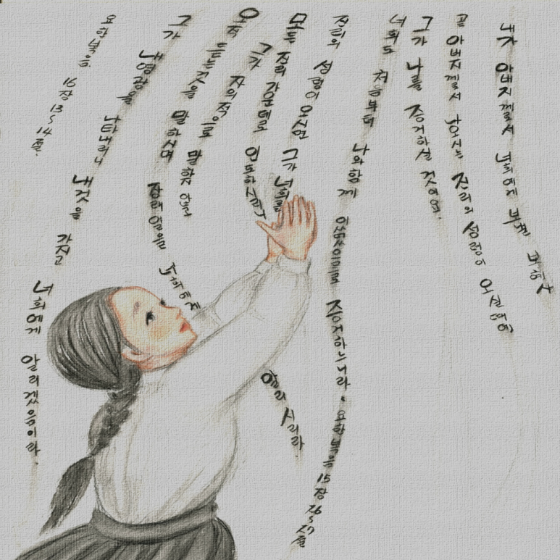 내가 아버지께로서 너희에게 보낼 보혜사
곧 아버지께로서 나오시는 진리의 성령이 오실 때에
그가 나를 증거하실 것이요.
너희도 처음부터 나와 함께 있었으므로 증거하느니라. 요한복음 15장 26~27절
진리의 성령이 오시면 그가 너희를
모든 진리 가운데로 인도하시리니
그가 말
오직 듣는 것을 말하시며 장래 일을 너희에게 알리시리라
그가 내 영광을 나타내리니 내 것을 가지고 너희에게 알리겠음이라.
요한복음 16장 13~14절.